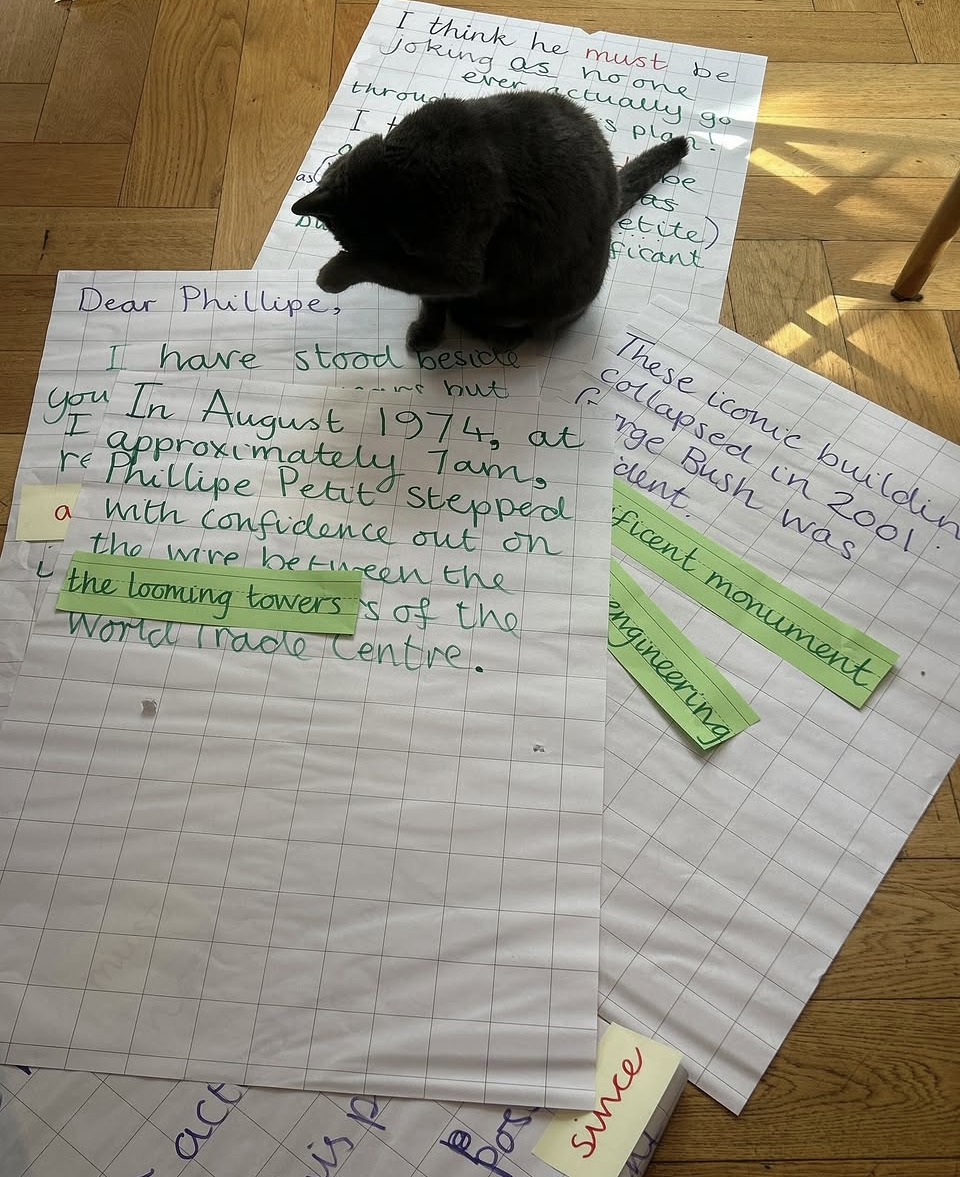 I think he must be
joking as no one
ever actually go
through is plan!
I
be
as as
etite)
ficant
Dear Phillipe,
I have stood beside
you but
I
re
a
In August 1974, at
approximately 7am,
Phillipe Petit stepped
with confidence out on
the wire between the
the looming towers s of the
World Trade Centre.
These iconic buildin
collapsed in 2001.
rge Bush was
ident.
ificent monument
engineering
since
act
is p
pos